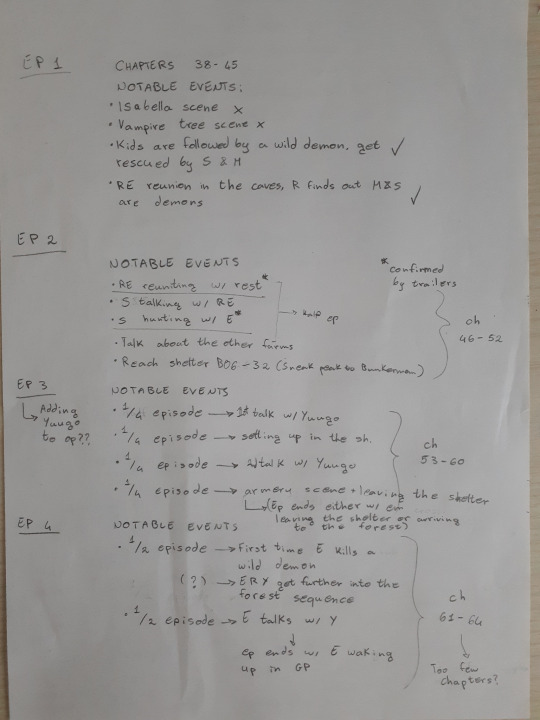 EP 1
CHAPTERS 38-45
NOTABLE EVENTS:
• Isabella scene x
• Vampire tree scene x
• Kids are followed by a wild demon, get ✓
rescued by S & M
• RE reunion in the caves, R finds out M&S ✓
are demons
EP 2
NOTABLE EVENTS
• RE reuniting w/ rest*
• S talking w/ RE
• S hunting w/ E*
→ half ep
• Talk about the other farms
• Reach shelter B06-32 (Sneak peak to Bunkerman)
* confirmed
by trailers
ch
46-52
EP 3
↳ Adding
Yuugo
to op??
NOTABLE EVENTS
• 1/4 episode → 1st talk w/ Yuugo
• 1/4 episode → setting up in the sh.
• 1/4 episode → 2) talk w/ Yuugo
• 1/4 episode → armery scene + leaving the shelter
↳ (Ep ends either w/ em
leaving the shelter or arriving
to the forest)
ch
53-60
EP 4
NOTABLE EVENTS
• 1/2 episode → First time E kills a
wild demon
(?) → ERY get further into the
forest sequence
• 1/2 episode → E talks w/ Y
↓
ep ends w/ E waking
up in GP
ch
61-64
↓
Too few
chapters?